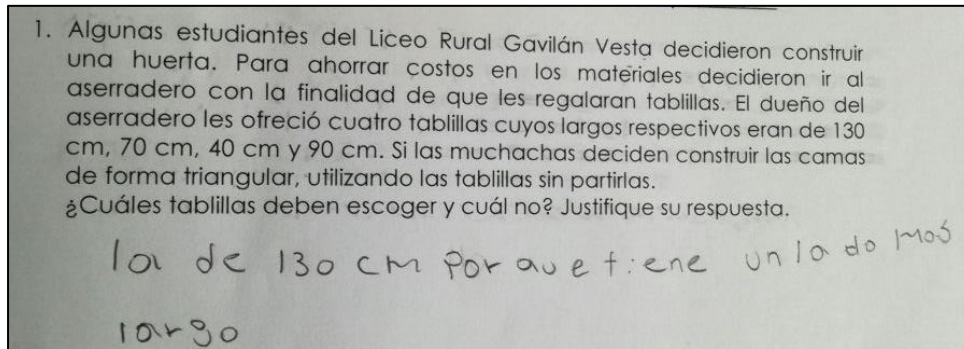 1. Algunas estudiantes del Liceo Rural Gavilán Vesta decidieron construir
una huerta. Para ahorrar costos en los materiales decidieron ir al
aserradero con la finalidad de que les regalaran tablillas. El dueño del
aserradero les ofreció cuatro tablillas cuyos largos respectivos eran de 130
cm, 70 cm, 40 cm y 90 cm. Si las muchachas deciden construir las camas
de forma triangular, utilizando las tablillas sin partirlas.
¿Cuáles tablillas deben escoger y cuál no? Justifique su respuesta.
la de 130 cm Porque tiene un lado mas
largo